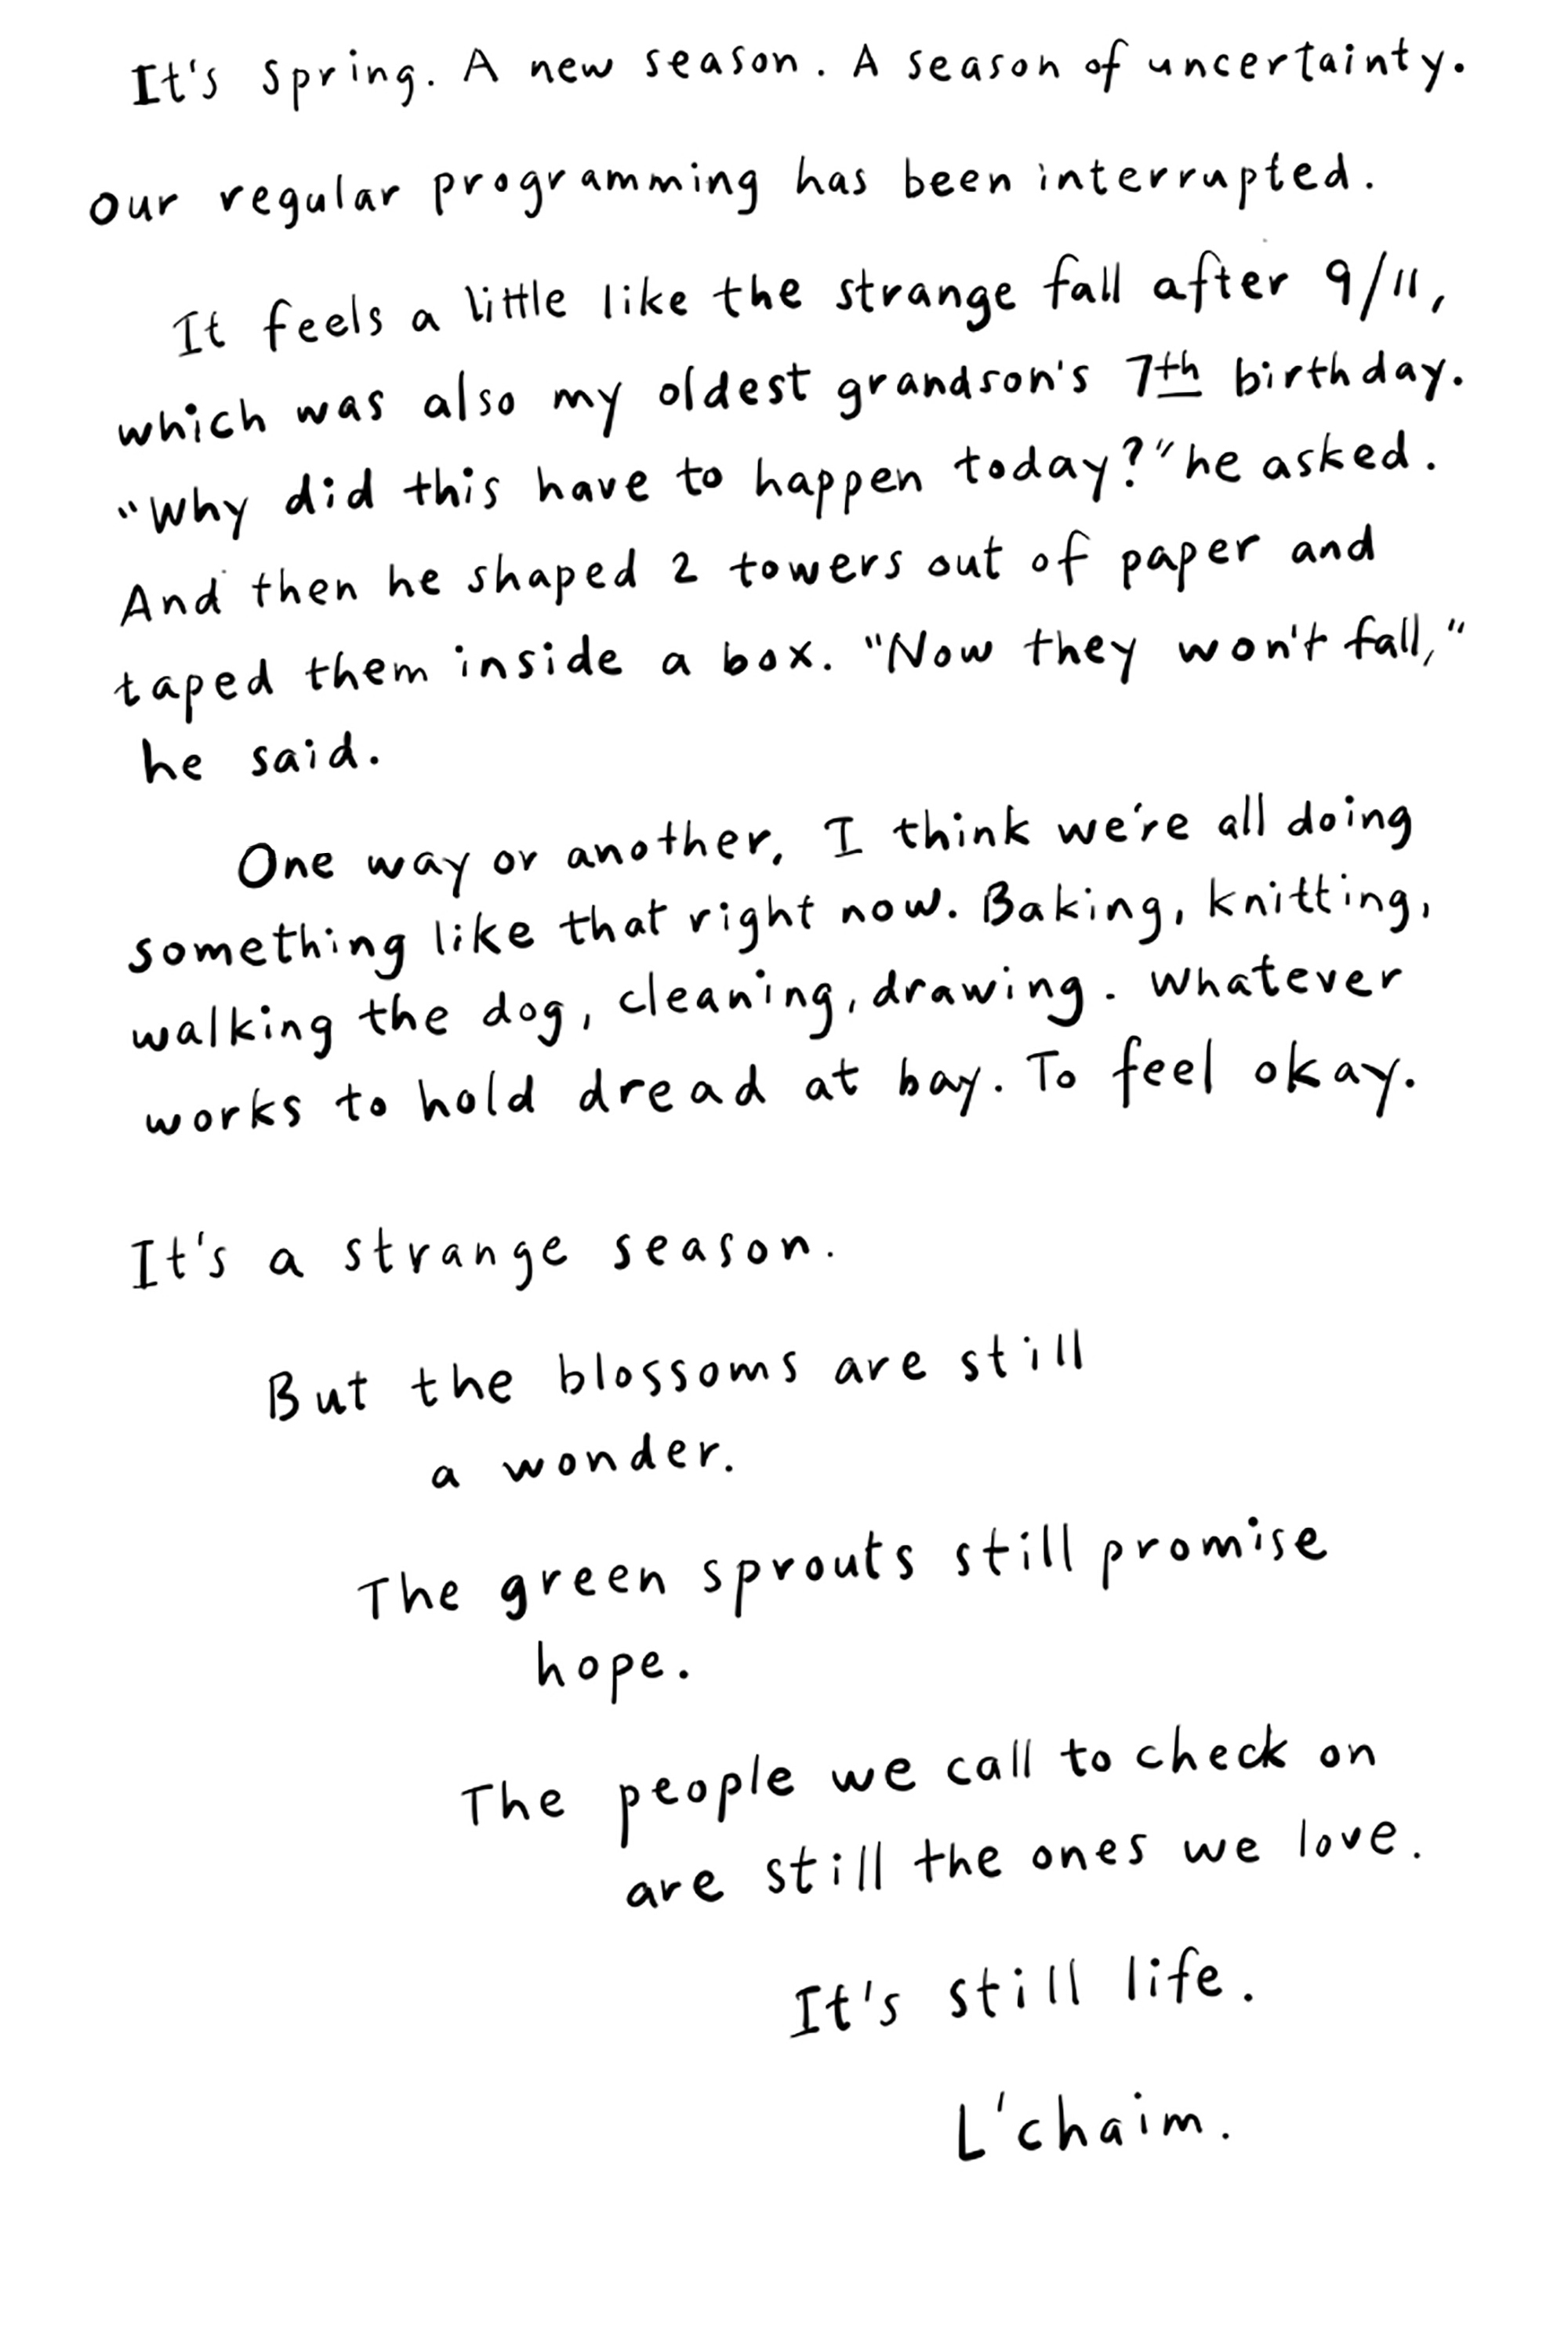 It's spring. A new season. A season of uncertainty.
our regular programming has been interrupted.
It feels a little like the strange fall after 9/11,
which was also my oldest grandson's 7th birthday.
"Why did this have to happen today?" he asked.
And then he shaped 2 towers out of paper and
taped them inside a box. "Now they won't fall,"
he said.
One way or another, I think we're all doing
something like that right now. Baking, knitting,
walking the dog, cleaning, drawing. Whatever
works to hold dread at bay. To feel okay.
It's a strange season.
But the blossoms are still
a wonder.
The green sprouts still promise
hope.
The people we call to check on
are still the ones we love.
It's still life.
L'chaim.